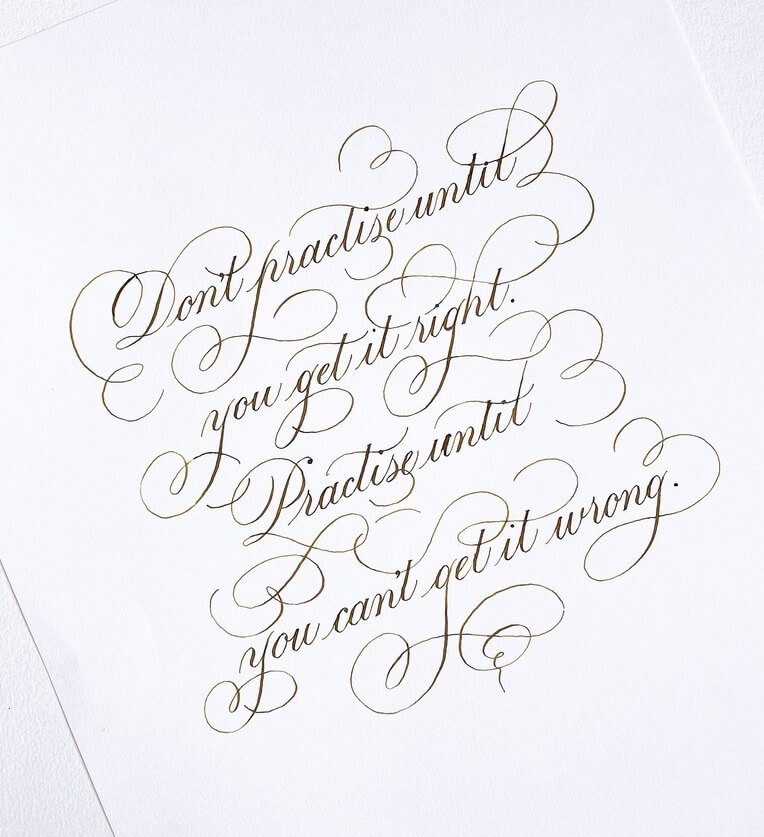 Don't practise until
you get it right.
Practise until
you can't get it wrong.